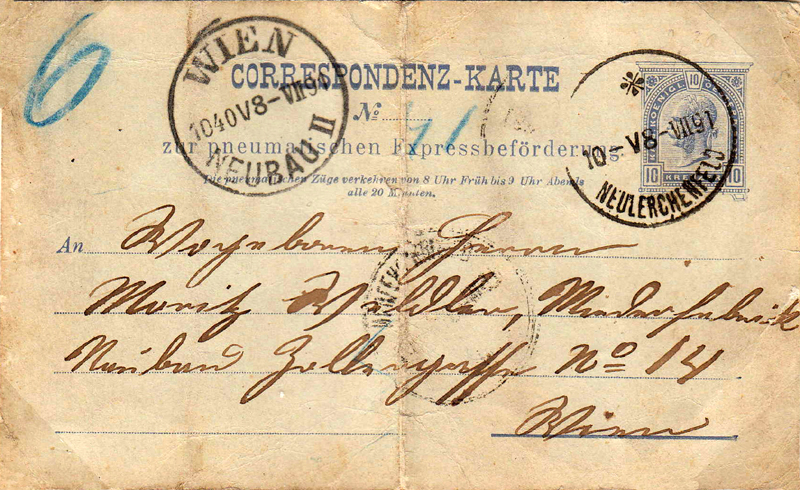 6
WIEN
1040V8-VII91
NEUBAU II
CORRESPONDENZ-KARTE
No
zur pneumatischen Expressbeförderung.
Die pneumatischen Züge verkehren von 8 Uhr Früh bis 9 Uhr Abends
alle 20 Minuten.
10
10
10
KREUZER
10-V8-VII91
NEULERCHENFELD
An
Herrn
Moritz Miederfabrik
Neubau No 14
Wien